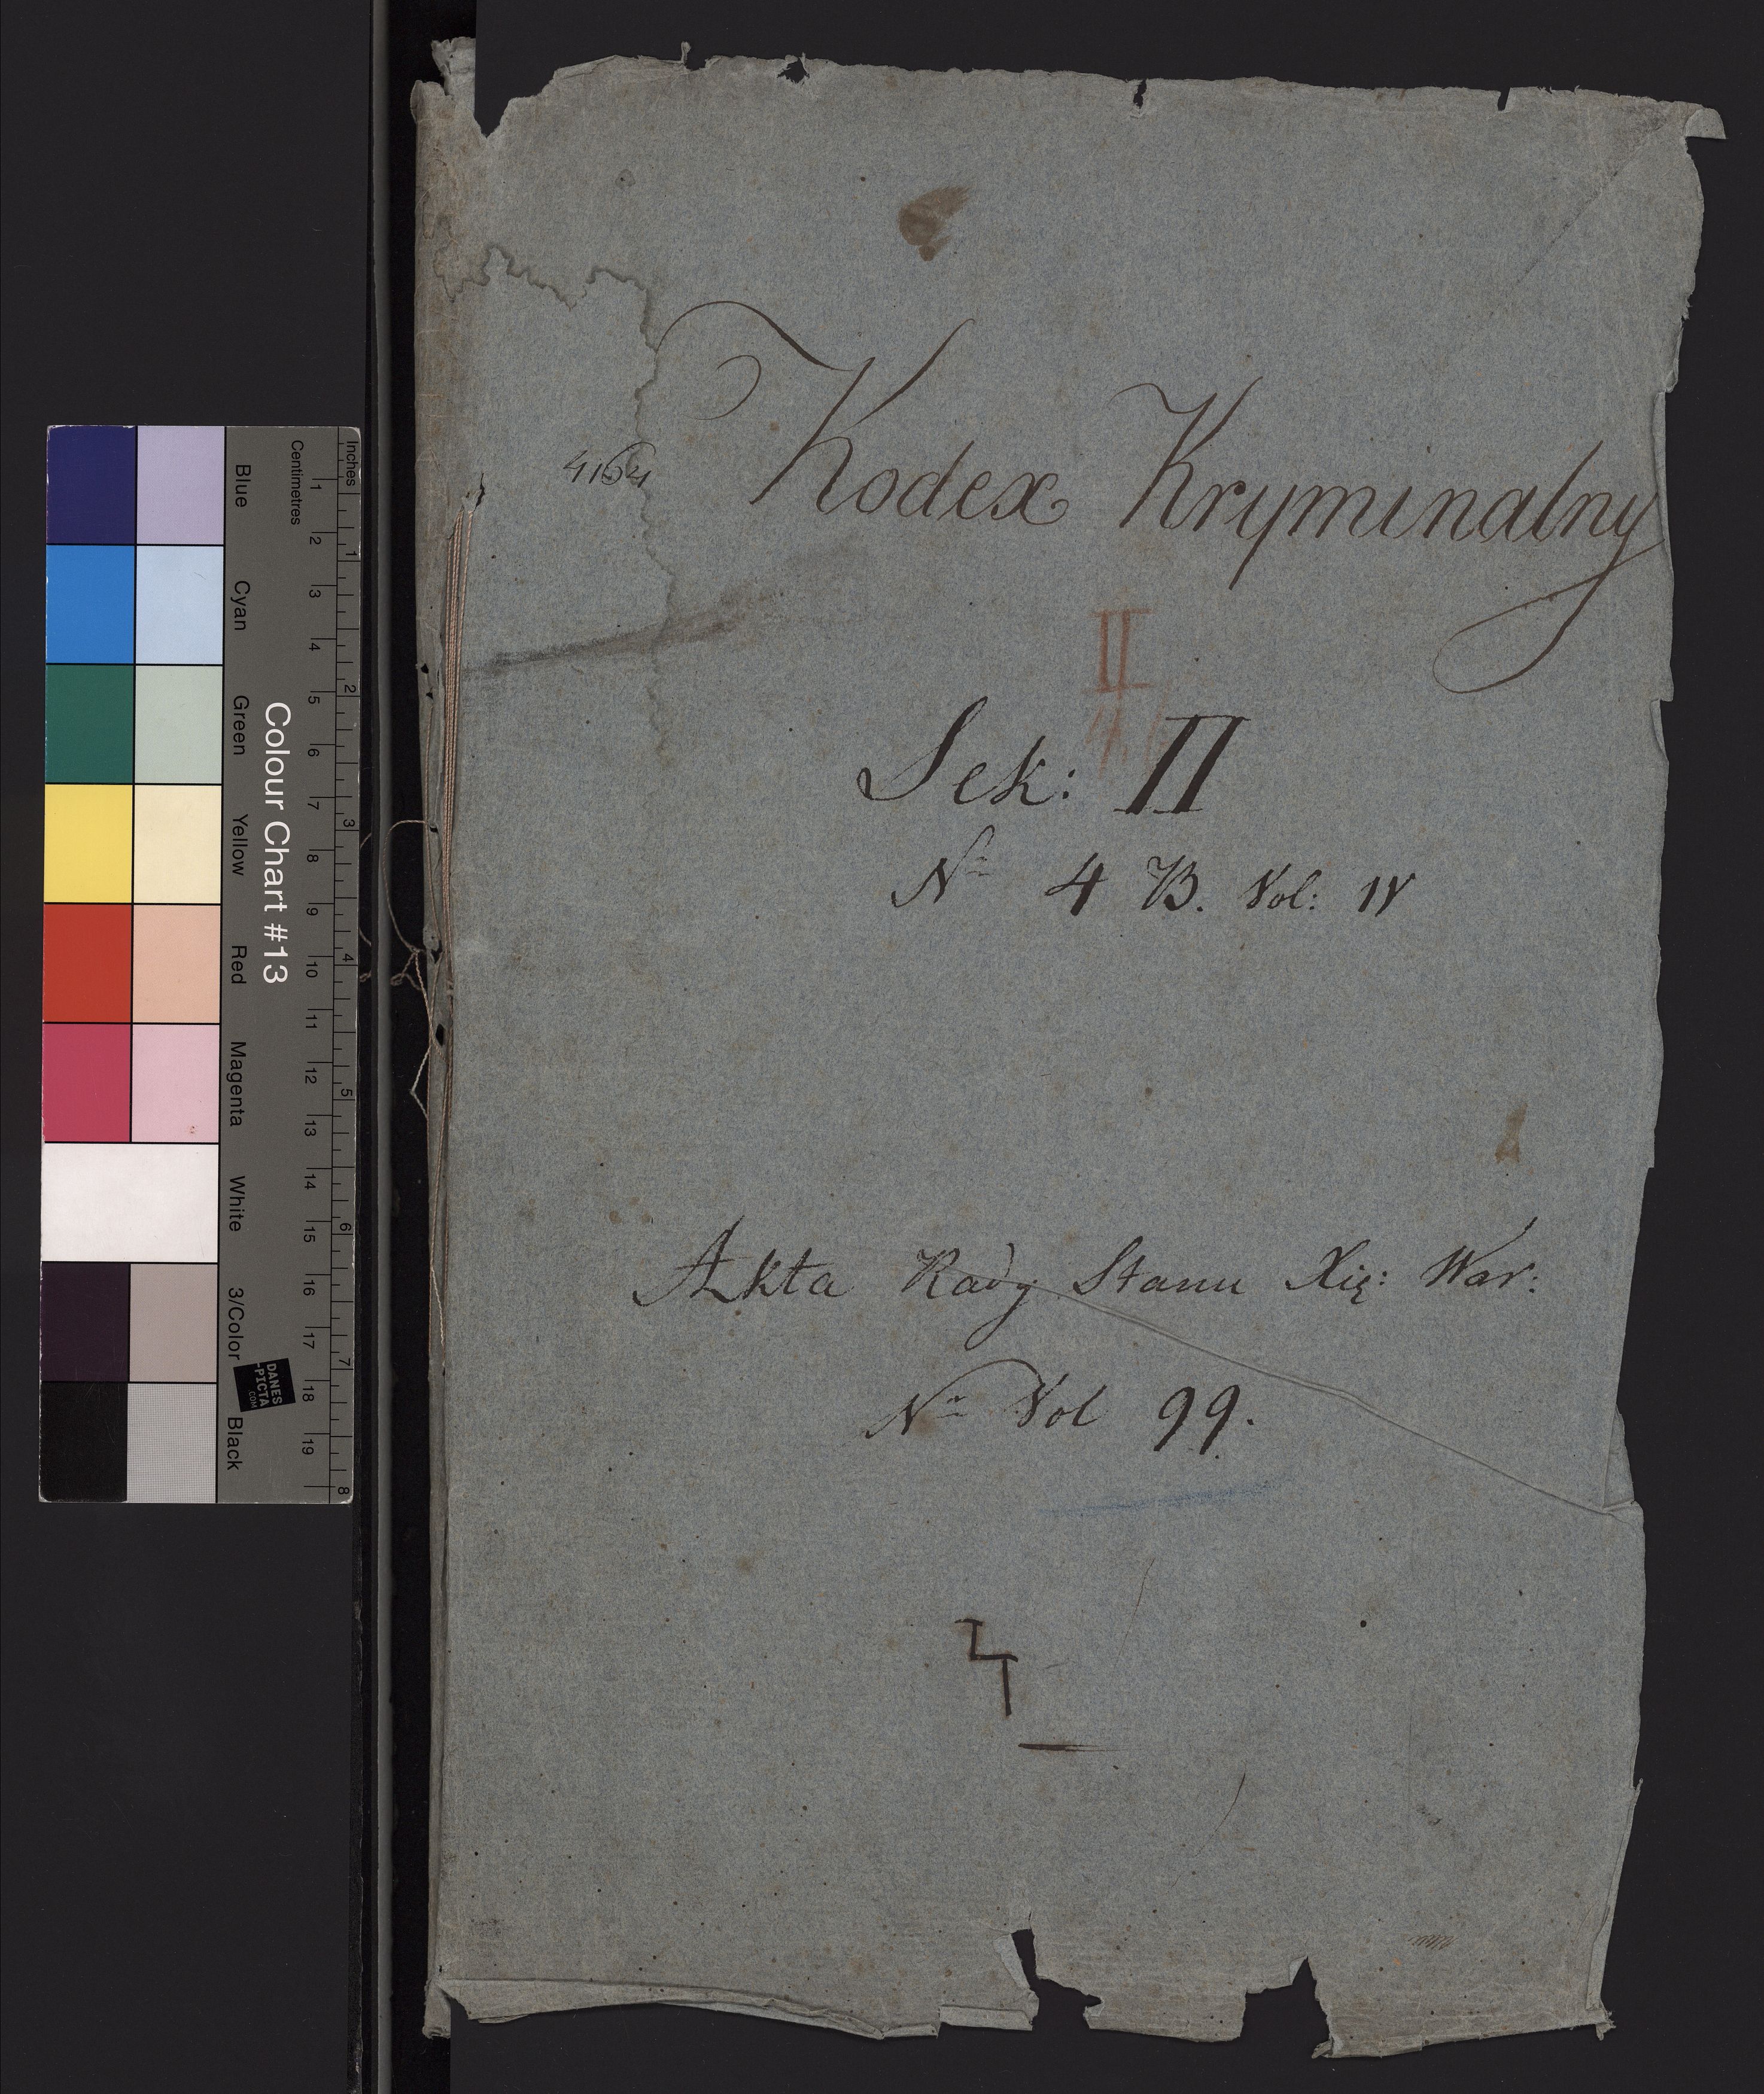 Kodex Kryminalny
4164
II
Sek: II
No 4 B. Vol: IV
Akta Rady Stanu Xię: War:
No Vol 99.
4
Colour Chart #13
Blue Cyan Green Yellow Red Magenta White 3/Color Black
Centimetres 1 2 3 4 5 6 7 8 9 10 11 12 13 14 15 16 17 18 19
Inches 1 2 3 4 5 6 7 8
DANES
-PICTA
.COM